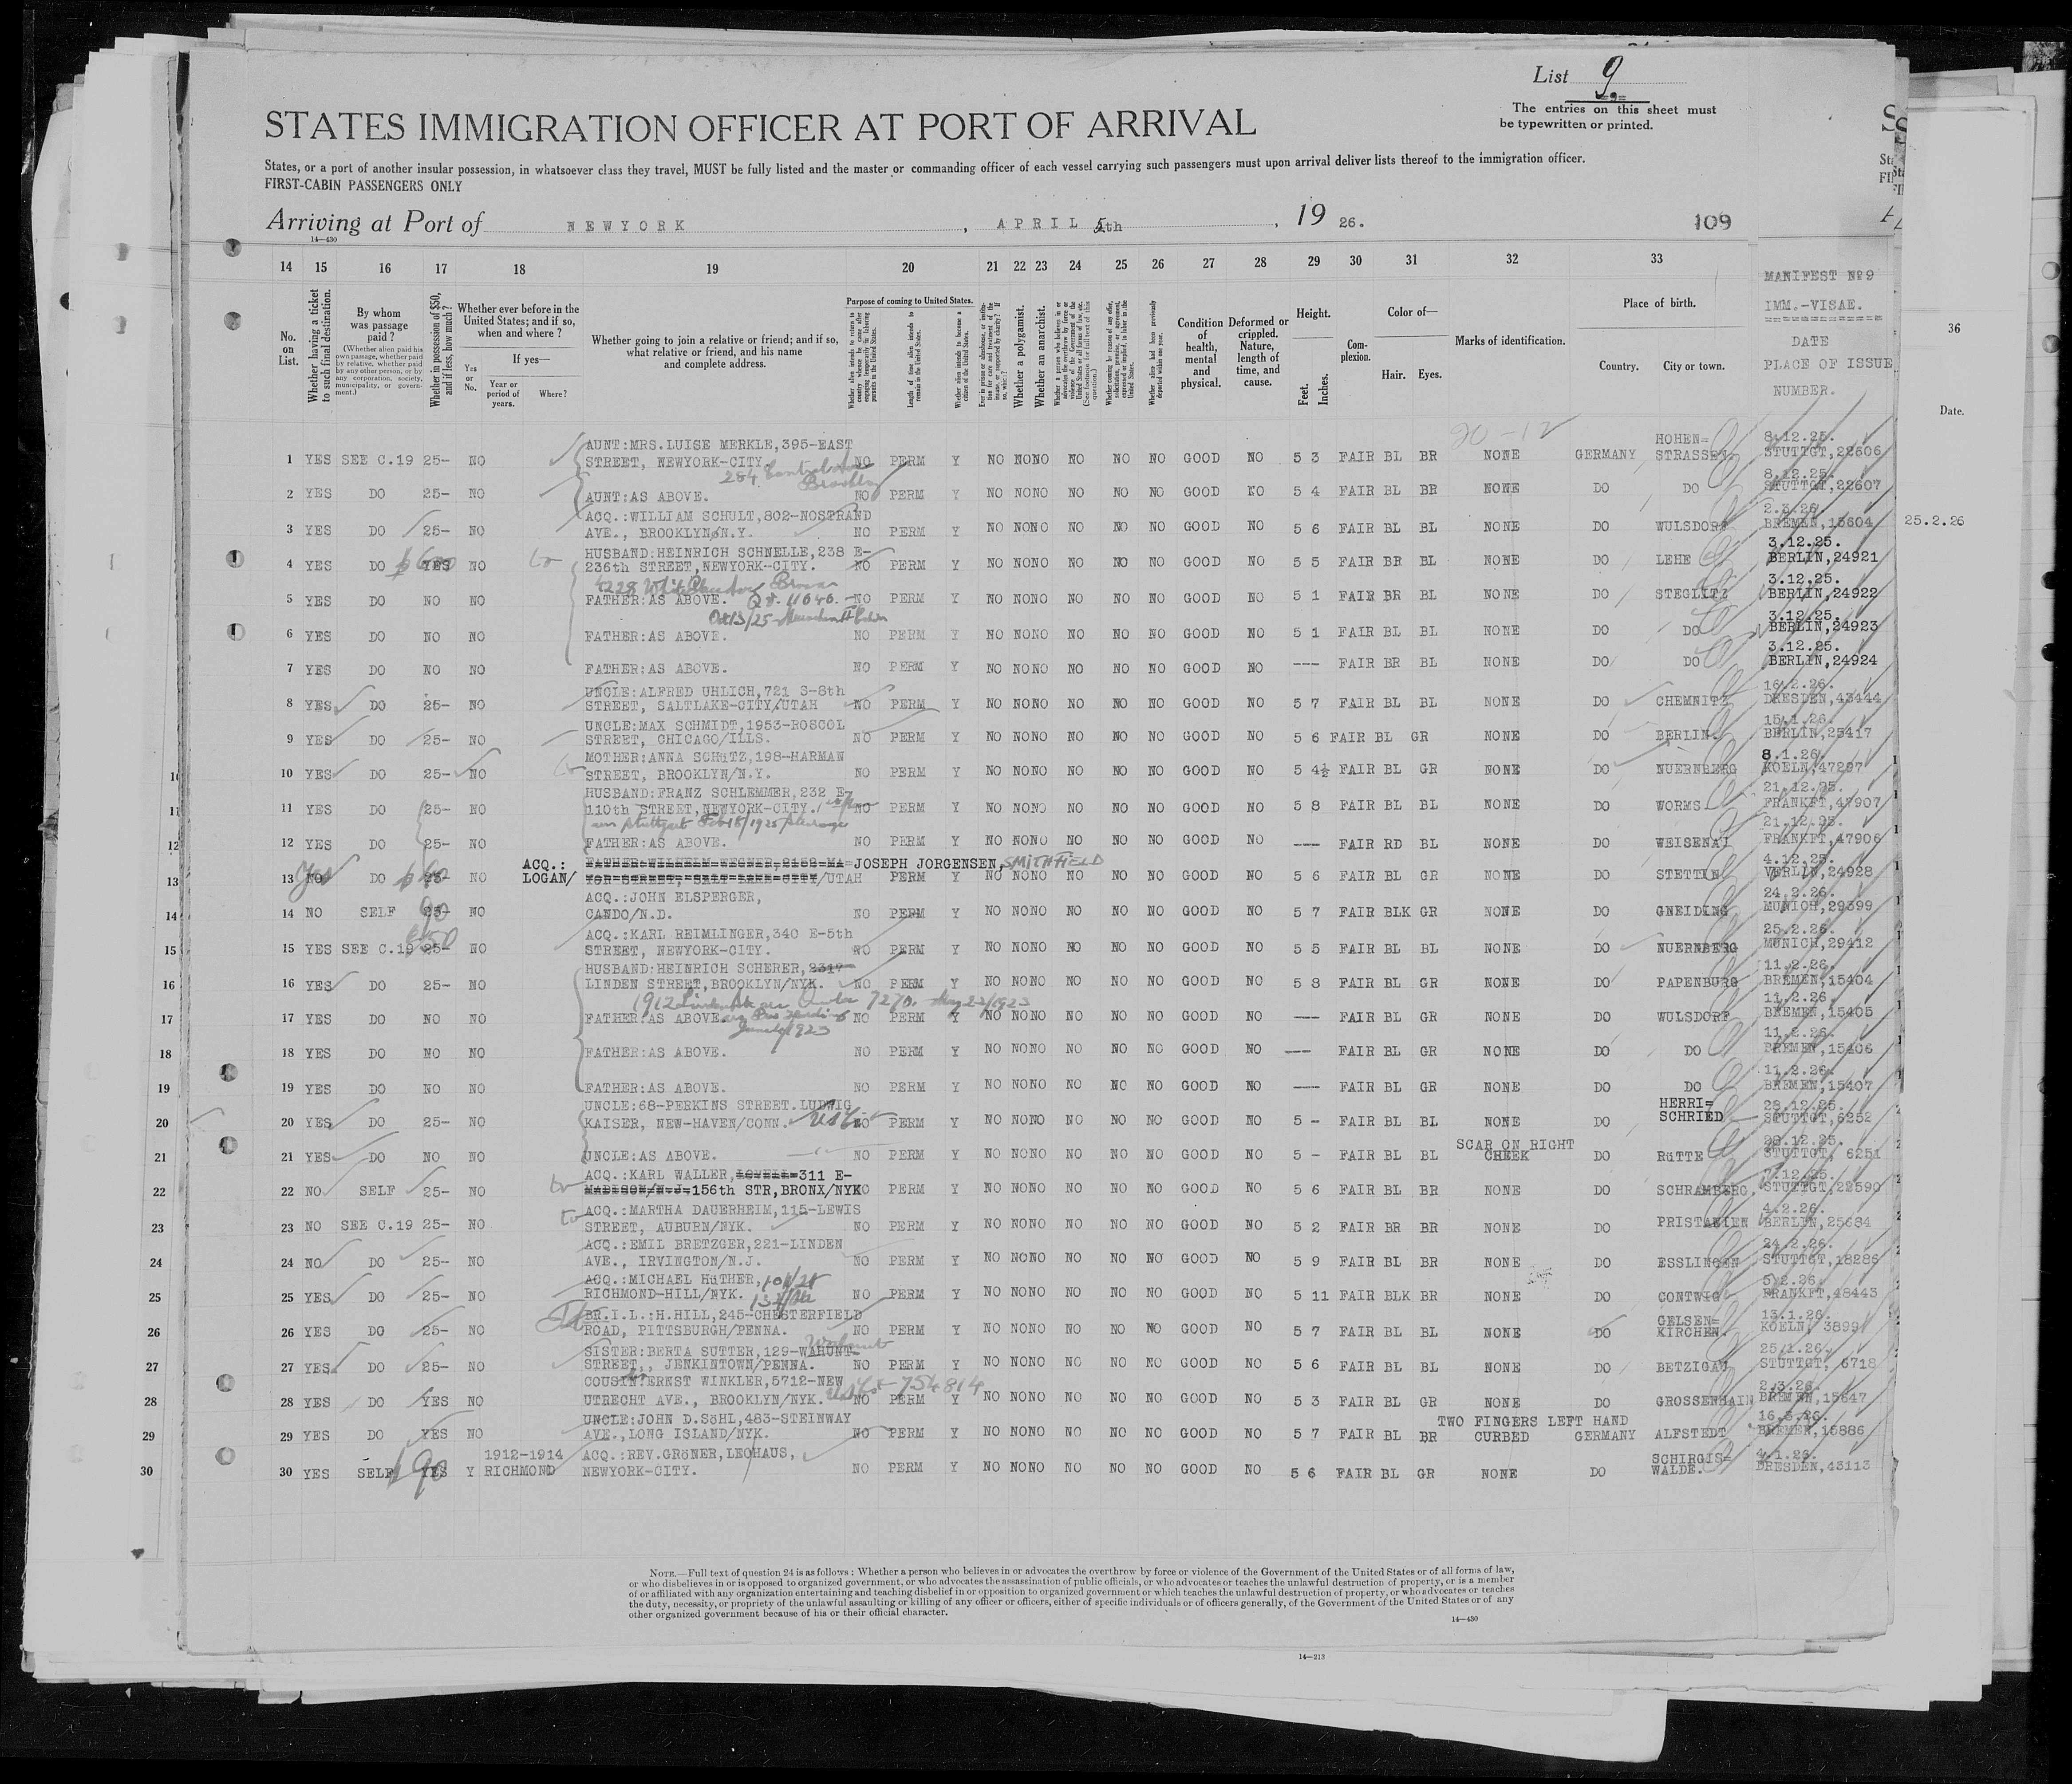 List 9
-9-
The entries on this sheet must
be typewritten or printed.
STATES IMMIGRATION OFFICER AT PORT OF ARRIVAL
States, or a port of another insular possession, in whatsoever class they travel, MUST be fully listed and the master or commanding officer of each vessel carrying such passengers must upon arrival deliver lists thereof to the immigration officer.
FIRST-CABIN PASSENGERS ONLY
Arriving at Port of NEWYORK, APRIL 5th, 1926. 109
14—430
14 15 16 17 18 19 20 21 22 23 24 25 26 27 28 29 30 31 32 33
MANIFEST Nº9
IMM.-VISAE.
DATE
PLACE OF ISSUE
NUMBER.
36
Date.
No. on List.
Whether having a ticket to such final destination.
By whom was passage paid?
(Whether alien paid his own passage, whether paid by relative, whether paid by any other person, or by any corporation, society, municipality, or government.)
Whether in possession of $50, and if less, how much?
Whether ever before in the United States; and if so, when and where?
If yes—
Yes or No.
Year or period of years.
Where?
Whether going to join a relative or friend; and if so, what relative or friend, and his name and complete address.
Purpose of coming to United States.
Length of time alien intends to remain in the United States.
Whether alien intends to become a citizen of the United States.
Whether a polygamist.
Whether an anarchist.
Condition of health, mental and physical.
Deformed or crippled. Nature, length of time, and cause.
Height.
Feet.
Inches.
Complexion.
Color of—
Hair.
Eyes.
Marks of identification.
Place of birth.
Country.
City or town.
20-12
1 YES SEE C.19 25- NO AUNT:MRS.LUISE MERKLE,395-EAST STREET, NEWYORK-CITY. NO PERM Y NO NO NO NO NO NO GOOD NO 5 3 FAIR BL BR NONE GERMANY HOHEN=STRASSEN 8.12.25. STUTTGT,22606
2 YES DO 25- NO AUNT:AS ABOVE. NO PERM Y NO NO NO NO NO NO GOOD NO 5 4 FAIR BL BR NONE DO DO 8.12.25. STUTTGT,22607
3 YES DO 25- NO ACQ.:WILLIAM SCHULT,802-NOSTRAND AVE., BROOKLYN/N.Y. NO PERM Y NO NO NO NO NO NO GOOD NO 5 6 FAIR BL BL NONE DO WULSDORF 2.3.26. BREMEN,15604 25.2.26
4 YES DO YES NO HUSBAND:HEINRICH SCHNELLE,238 E-236th STREET,NEWYORK-CITY. NO PERM Y NO NO NO NO NO NO GOOD NO 5 5 FAIR BR BL NONE DO LEHE 3.12.25. BERLIN,24921
5 YES DO NO NO FATHER:AS ABOVE. NO PERM Y NO NO NO NO NO NO GOOD NO 5 1 FAIR BR BL NONE DO STEGLITZ 3.12.25. BERLIN,24922
6 YES DO NO NO FATHER:AS ABOVE. NO PERM Y NO NO NO NO NO NO GOOD NO 5 1 FAIR BL BL NONE DO DO 3.12.25. BERLIN,24923
7 YES DO NO NO FATHER:AS ABOVE. NO PERM Y NO NO NO NO NO NO GOOD NO --- FAIR BR BL NONE DO DO 3.12.25. BERLIN,24924
8 YES DO 25- NO UNCLE:ALFRED UHLICH,721 S-8th STREET, SALTLAKE-CITY/UTAH NO PERM Y NO NO NO NO NO NO GOOD NO 5 7 FAIR BL BL NONE DO CHEMNITZ 16.2.26. DRESDEN,43444
9 YES DO 25- NO UNCLE:MAX SCHMIDT,1953-ROSCOL STREET, CHICAGO/ILLS. NO PERM Y NO NO NO NO NO NO GOOD NO 5 6 FAIR BL GR NONE DO BERLIN. 15.1.26. BERLIN,25417
10 YES DO 25- NO MOTHER:ANNA SCHüTZ,198-HARMAN STREET, BROOKLYN/N.Y. NO PERM Y NO NO NO NO NO NO GOOD NO 5 4½ FAIR BL GR NONE DO NUERNBERG 8.1.26. KOELN,47297
11 YES DO 25- NO HUSBAND:FRANZ SCHLEMMER,232 E-110th STREET,NEWYORK-CITY. NO PERM Y NO NO NO NO NO NO GOOD NO 5 8 FAIR BL BL NONE DO WORMS 21.12.25. FRANKFT,47907
12 YES DO 25- NO FATHER:AS ABOVE. NO PERM Y NO NO NO NO NO NO GOOD NO --- FAIR RD BL NONE DO WEISENAI 21.12.25. FRANKFT,47906
13 Yes NO DO 25- NO ACQ.: FATHER:WILHELM WEGNER,2158-MA= JOSEPH JORGENSEN, SMITHFIELD LOGAN/ YOR STREET, SALT LAKE CITY/UTAH PERM Y NO NO NO NO NO NO GOOD NO 5 6 FAIR BL GR NONE DO STETTIN 4.12.25. VERLIN,24928
14 NO SELF 25- 90 NO ACQ.:JOHN ELSPERGER, CANDO/N.D. NO PERM Y NO NO NO NO NO NO GOOD NO 5 7 FAIR BLK GR NONE DO GNEIDING 24.2.26. MUNICH,29399
15 YES SEE C.19 25- NO ACQ.:KARL REIMLINGER,340 E-5th STREET, NEWYORK-CITY. NO PERM Y NO NO NO NO NO NO GOOD NO 5 5 FAIR BL BL NONE DO NUERNBERG 25.2.26. MUNICH,29412
16 YES DO 25- NO HUSBAND:HEINRICH SCHERER,2317- LINDEN STREET,BROOKLYN/NYK. NO PERM Y NO NO NO NO NO NO GOOD NO 5 8 FAIR BL GR NONE DO PAPENBURG 11.2.26. BREMEN,15404
17 YES DO NO NO FATHER:AS ABOVE. NO PERM Y NO NO NO NO NO NO GOOD NO --- FAIR BL GR NONE DO WULSDORF 11.2.26. BREMEN,15405
18 YES DO NO NO FATHER:AS ABOVE. NO PERM Y NO NO NO NO NO NO GOOD NO --- FAIR BL GR NONE DO DO 11.2.26. BREMEN,15406
19 YES DO NO NO FATHER:AS ABOVE. NO PERM Y NO NO NO NO NO NO GOOD NO --- FAIR BL GR NONE DO DO 11.2.26. BREMEN,15407
20 YES DO 25- NO UNCLE:68-PERKINS STREET.LUDWIG KAISER, NEW-HAVEN/CONN. NO PERM Y NO NO NO NO NO NO GOOD NO 5 - FAIR BL BL NONE DO HERRI=SCHRIED 29.12.25. STUTTGT,6252
21 YES DO NO NO UNCLE:AS ABOVE. NO PERM Y NO NO NO NO NO NO GOOD NO 5 - FAIR BL BL SCAR ON RIGHT CHEEK DO RüTTE 29.12.25. STUTTGT, 6251
22 NO SELF 25- NO ACQ.:KARL WALLER, 311 E- MADISON/N.J. 156th STR,BRONX/NYK NO PERM Y NO NO NO NO NO NO GOOD NO 5 6 FAIR BL BR NONE DO SCHRAMBERG. 7.12.25. STUTTGT,22590
23 NO SEE C.19 25- NO ACQ.:MARTHA DAUERHEIM,115-LEWIS STREET, AUBURN/NYK. NO PERM Y NO NO NO NO NO NO GOOD NO 5 2 FAIR BR BR NONE DO PRISTANIEN 4.2.26. BERLIN,25684
24 NO DO 25- NO ACQ.:EMIL BRETZGER,221-LINDEN AVE., IRVINGTON/N.J. NO PERM Y NO NO NO NO NO NO GOOD NO 5 9 FAIR BL BR NONE DO ESSLINGEN 24.2.26. STUTTGT,18286
25 YES DO 25- NO ACQ.:MICHAEL HüTHER, RICHMOND-HILL/NYK. NO PERM Y NO NO NO NO NO NO GOOD NO 5 11 FAIR BLK BR NONE DO CONTWIG 5.2.26. FRANKFT,48443
26 YES DO 25- NO BR.I.L.:H.HILL,245-CHESTERFIELD ROAD, PITTSBURGH/PENNA. NO PERM Y NO NO NO NO NO NO GOOD NO 5 7 FAIR BL BL NONE DO GELSEN=KIRCHEN. 13.1.26. KOELN, 3899
27 YES DO 25- NO SISTER:BERTA SUTTER,129-WAHUNT- Walnut STREET,, JENKINTOWN/PENNA. NO PERM Y NO NO NO NO NO NO GOOD NO 5 6 FAIR BL BL NONE DO BETZIGAU 25.1.26. STUTTGT, 6718
28 YES DO YES NO COUSIN:ERNST WINKLER,5712-NEW UTRECHT AVE., BROOKLYN/NYK. 754814 NO PERM Y NO NO NO NO NO NO GOOD NO 5 3 FAIR BL GR NONE DO GROSSENHAIN 2.3.26. BREMEN,15647
29 YES DO YES NO UNCLE:JOHN D.SöHL,483-STEINWAY AVE.,LONG ISLAND/NYK. NO PERM Y NO NO NO NO NO NO GOOD NO 5 7 FAIR BL BR TWO FINGERS LEFT HAND CURBED GERMANY ALFSTEDT 16.3.26. BREMEN,15886
30 YES SELF YES Y 1912-1914 RICHMOND ACQ.:REV.GRöNER,LEOHAUS, NEWYORK-CITY. NO PERM Y NO NO NO NO NO NO GOOD NO 5 6 FAIR BL GR NONE DO SCHIRGIS=WALDE. 4.1.26. DRESDEN,43113
NOTE.—Full text of question 24 is as follows: Whether a person who believes in or advocates the overthrow by force or violence of the Government of the United States or of all forms of law,
or who disbelieves in or is opposed to organized government, or who advocates the assassination of public officials, or who advocates or teaches the unlawful destruction of property, or is a member
of or affiliated with any organization entertaining and teaching disbelief in or opposition to organized government or which teaches the unlawful destruction of property, or who advocates or teaches
the duty, necessity, or propriety of the unlawful assaulting or killing of any officer or officers, either of specific individuals or of officers generally, of the Government of the United States or of any
other organized government because of his or their official character.
14—430
14—213